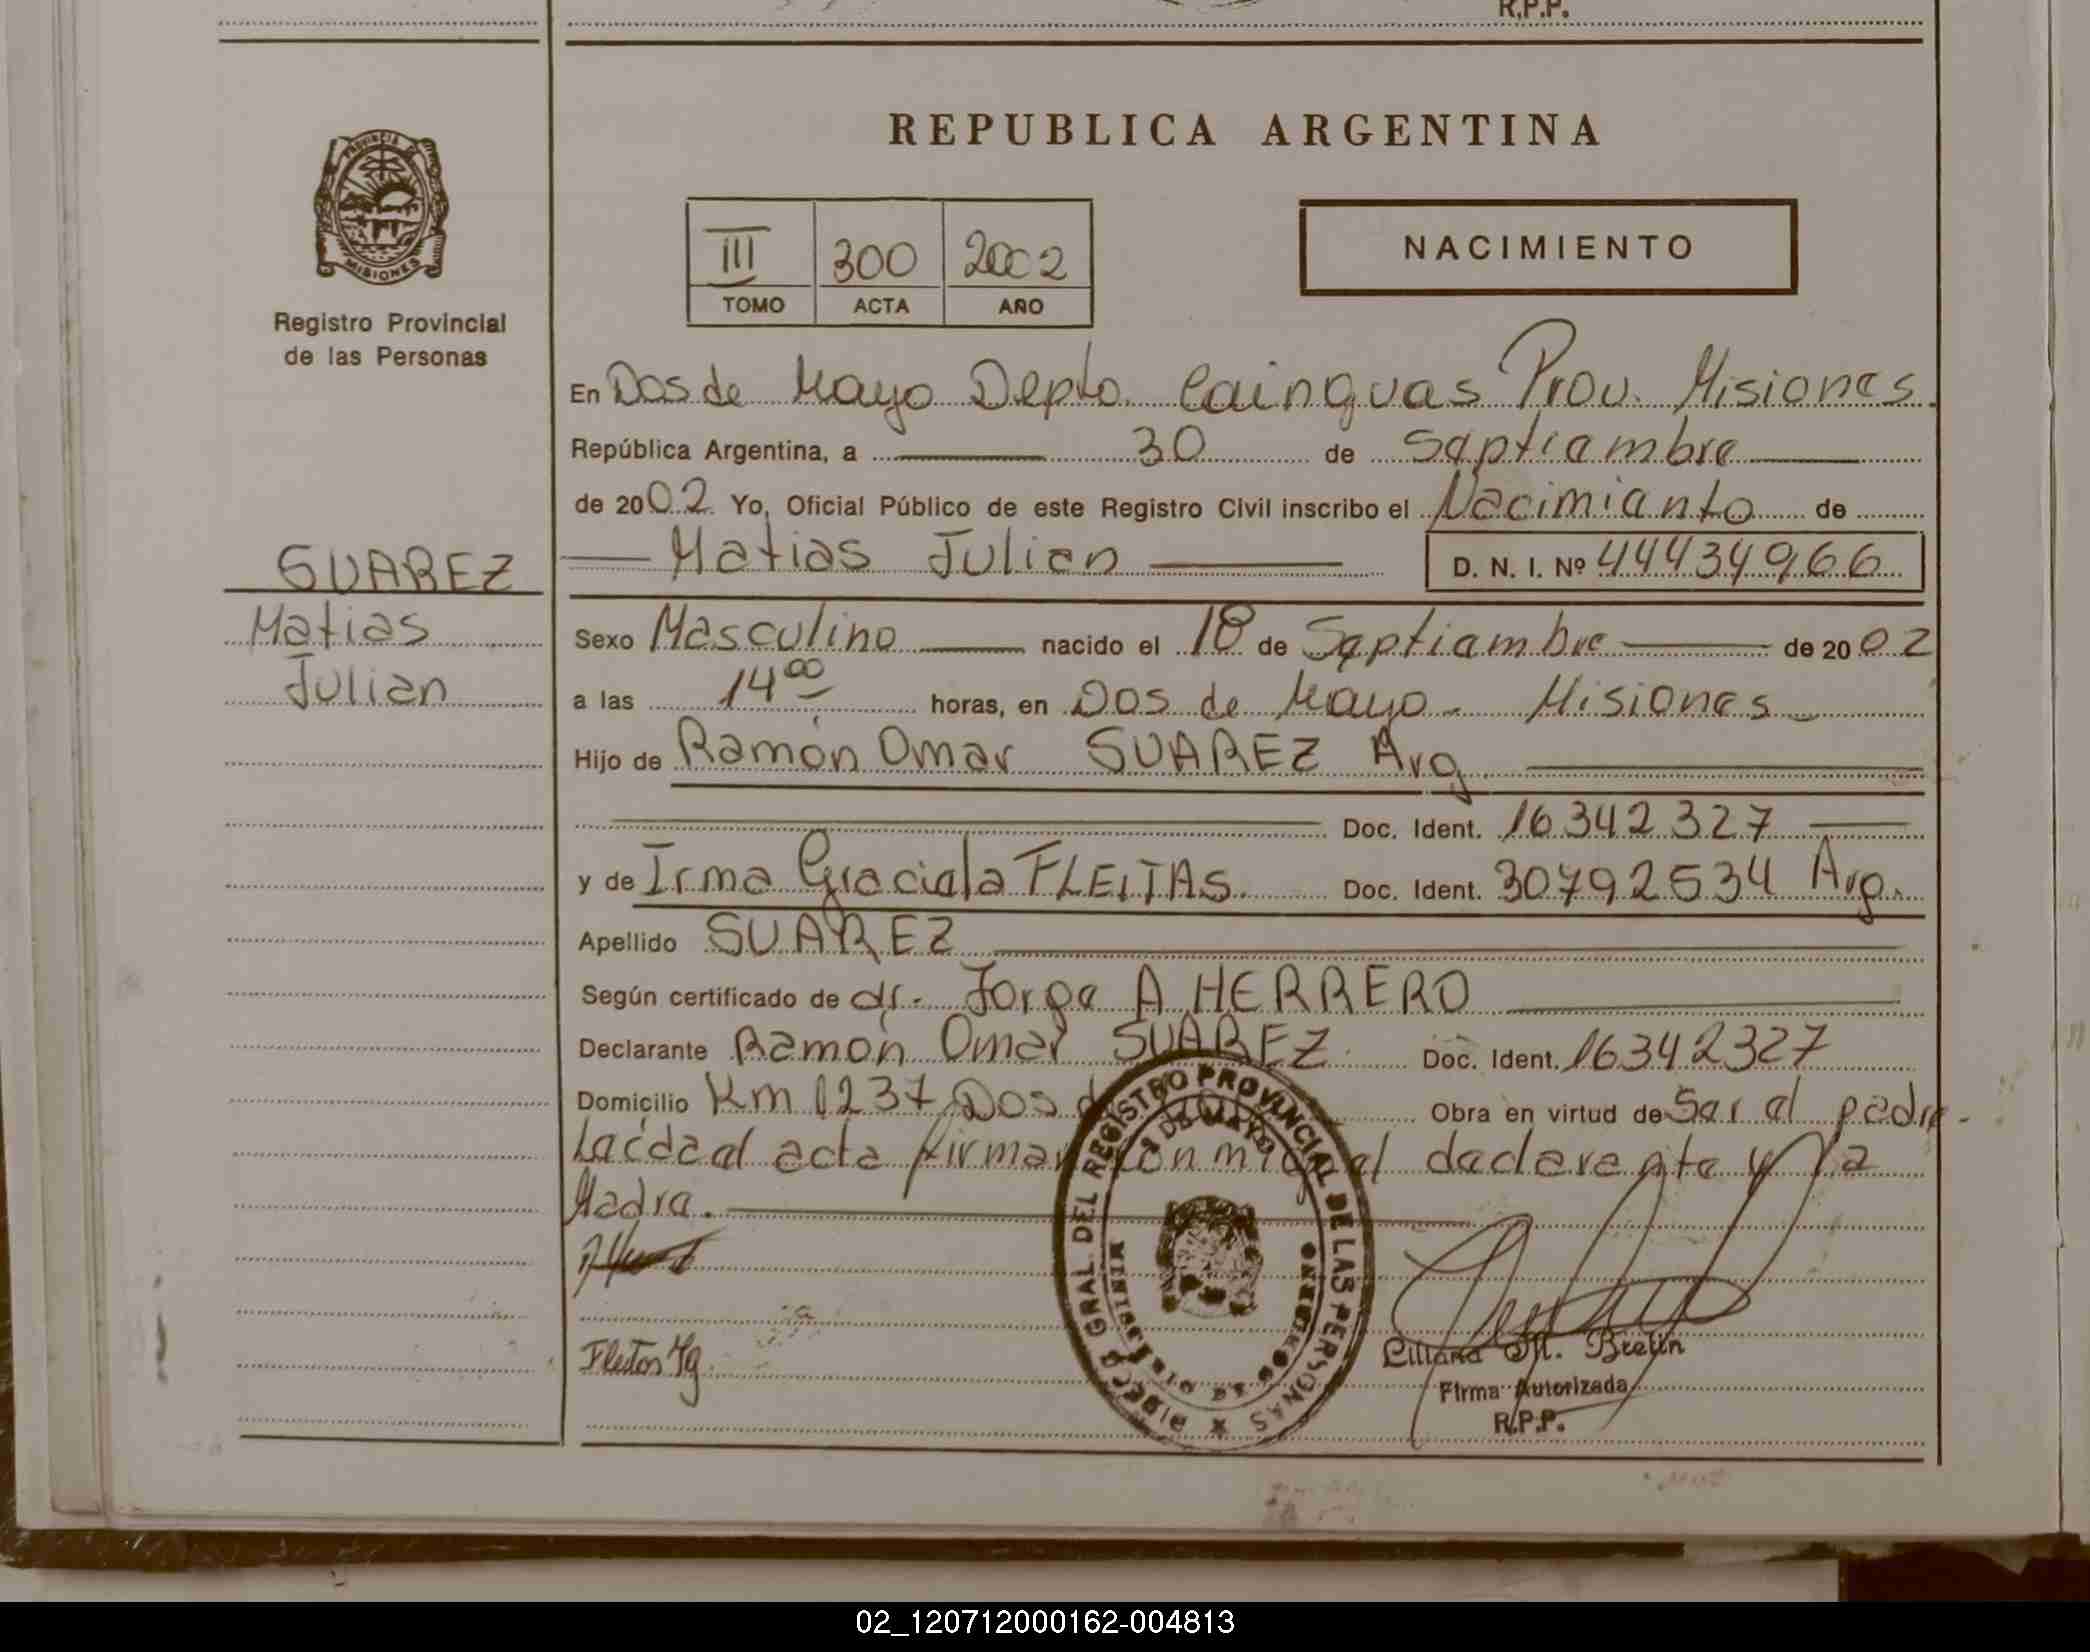 R.P.P.
PROVINCIA DE
MISIONES
Registro Provincial
de las Personas
SUAREZ
Matias
Julian
REPUBLICA ARGENTINA
III 300 2002
TOMO ACTA AÑO
NACIMIENTO
En Dos de Mayo Depto. Cainguas Prov. Misiones.
República Argentina, a 30 de Septiembre
de 2002 Yo, Oficial Público de este Registro Civil inscribo el Nacimiento de
Matias Julian D. N. I. Nº 44434966
Sexo Masculino nacido el 18 de Septiembre de 2002
a las 14 00 horas, en Dos de Mayo - Misiones
Hijo de Ramón Omar SUAREZ Arg
Doc. Ident. 16342327
y de Irma Graciela FLEITAS Doc. Ident. 30792534 Arg.
Apellido SUAREZ
Según certificado de dr. Jorge A HERRERO
Declarante Ramón Omar SUAREZ. Doc. Ident. 16342327
Domicilio Km 1237 Dos de Mayo Obra en virtud de Ser el padre.
Leída el acta firman conmigo el declarante y la
Madre.
Fleitas Ig
DIRECC GRAL. DEL REGISTRO PROVINCIAL DE LAS PERSONAS
2 DE MAYO
MINISTERIO DE GOBIERNO
Liliana M. Breitn
Firma Autorizada
R.P.P.
02_120712000162-004813